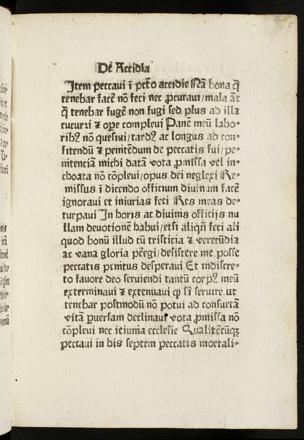 De Accidia
Item peccaui ī pctō accidie Nā bona q̄
tenebar facē nō feci nec ꝓcuraui/mala āt
q̄ tenebar fugē non fugi sed plus ad illa
cucurri ⁊ oꝑe compleui Panē meū labo-
ribꝰ nō quesiui/tardꝰ at longus ad con-
fitendū ⁊ penitēdum de peccatis fui/pe-
nitenciā michi datā vota ꝓmissa vel in-
choata nō cōpleui/opus dei neglexi Re-
missus ī dicendo officium diuinum facē
ignoraui et iniurias feci Res meas de-
turpaui In horis at diuinis officijs nu
llam deuotionē habui/etsi aliqñ feci ali
quod bonū illud cū tristicia ⁊ verecūdia
at vana gloria ꝑegi/desistere me posse
peccatis penitus desperaui Et indiscre-
to fauore deo seruiendi tantū corpꝰ meū
exterminaui ⁊ extenuaui ꝙ sī seruire ut
tenebar postmodū nō potui ad consuetā
vitā ꝑuersam declinaui vota ꝓmissa nō
cōpleui nec ieiunia ecclesie Qualitercūqꝫ
peccaui in his septem peccatis mortali-